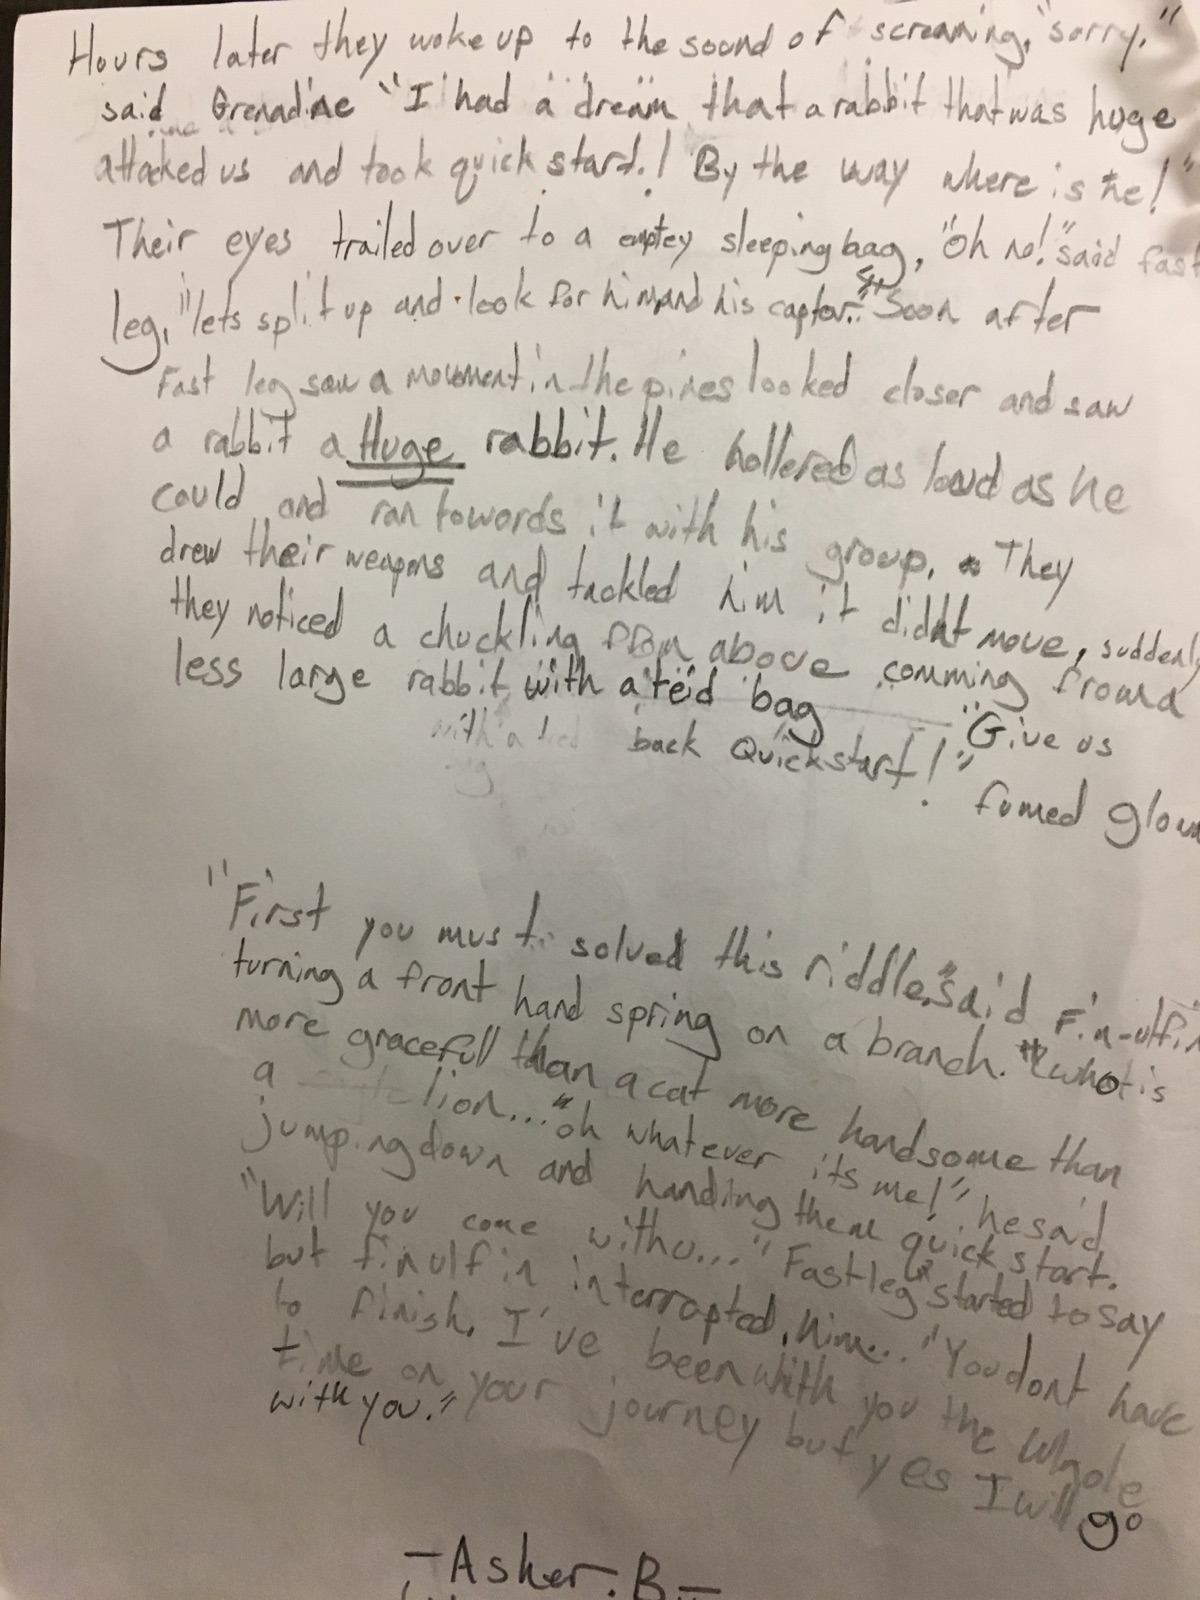 Hours later they woke up to the sound of screaming, "sorry,"
said Grenadine "I had a dream that a rabbit that was huge
attacked us and took quick start.! By the way where is he!"
Their eyes trailed over to a emptey sleeping bag, "Oh no!" said fast
leg, "lets split up and look for him and his captor." Soon after
Fast leg saw a movement in the pines looked closer and saw
a rabbit a Huge rabbit. He hollered as loud as he
could and ran towords it with his group. They
drew their weapons and tackled him it didn't move, suddenly
they noticed a chuckling from above comming from a
less large rabbit with a teid bag "Give us
back Quickstart!" fumed glou
"First you must solved this riddle," said Fin-ulfin
turning a front hand spring on a branch. "what is
more gracefull than a cat more handsome than
a lion..." "oh whatever its me!" he said
jumping down and handing them quick start.
"Will you come with u..." Fastleg started to say
but finulfin interrupted him... "You dont have
to finish, I've been whith you the whole
time on your journey but yes I will go
with you."
- Asher. B -